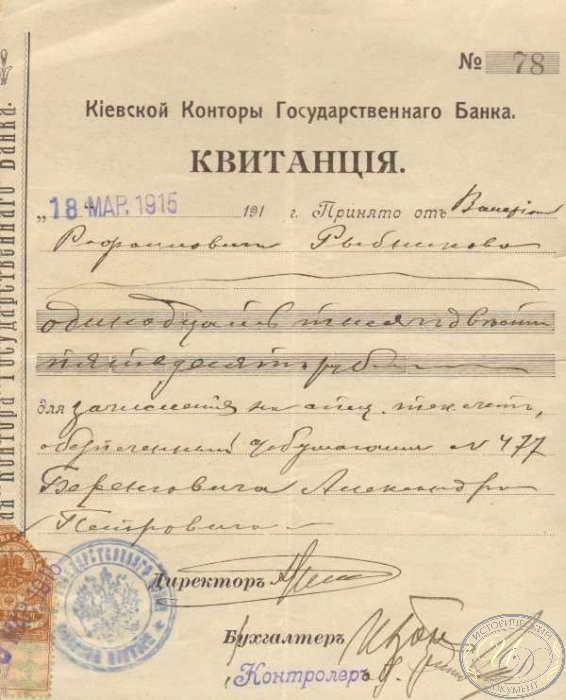 № 78
Кіевской Конторы Государственнаго Банка.
КВИТАНЦІЯ.
„18 МАР. 1915 191 г. Принято отъ Валеріана
Рафаиловича Рыбникова
одиннадцать тысячъ двѣсти
пятьдесятъ рублей
для зачисленія на спец. тек. счетъ,
обезпеченный % бумагами № 477
Беренговича Александра
Петровича
Директоръ
Бухгалтеръ
Контролеръ
ая Контора Государственнаго Банка.
ИСТОРИЧЕСКИЙ
ДОКУМЕНТ